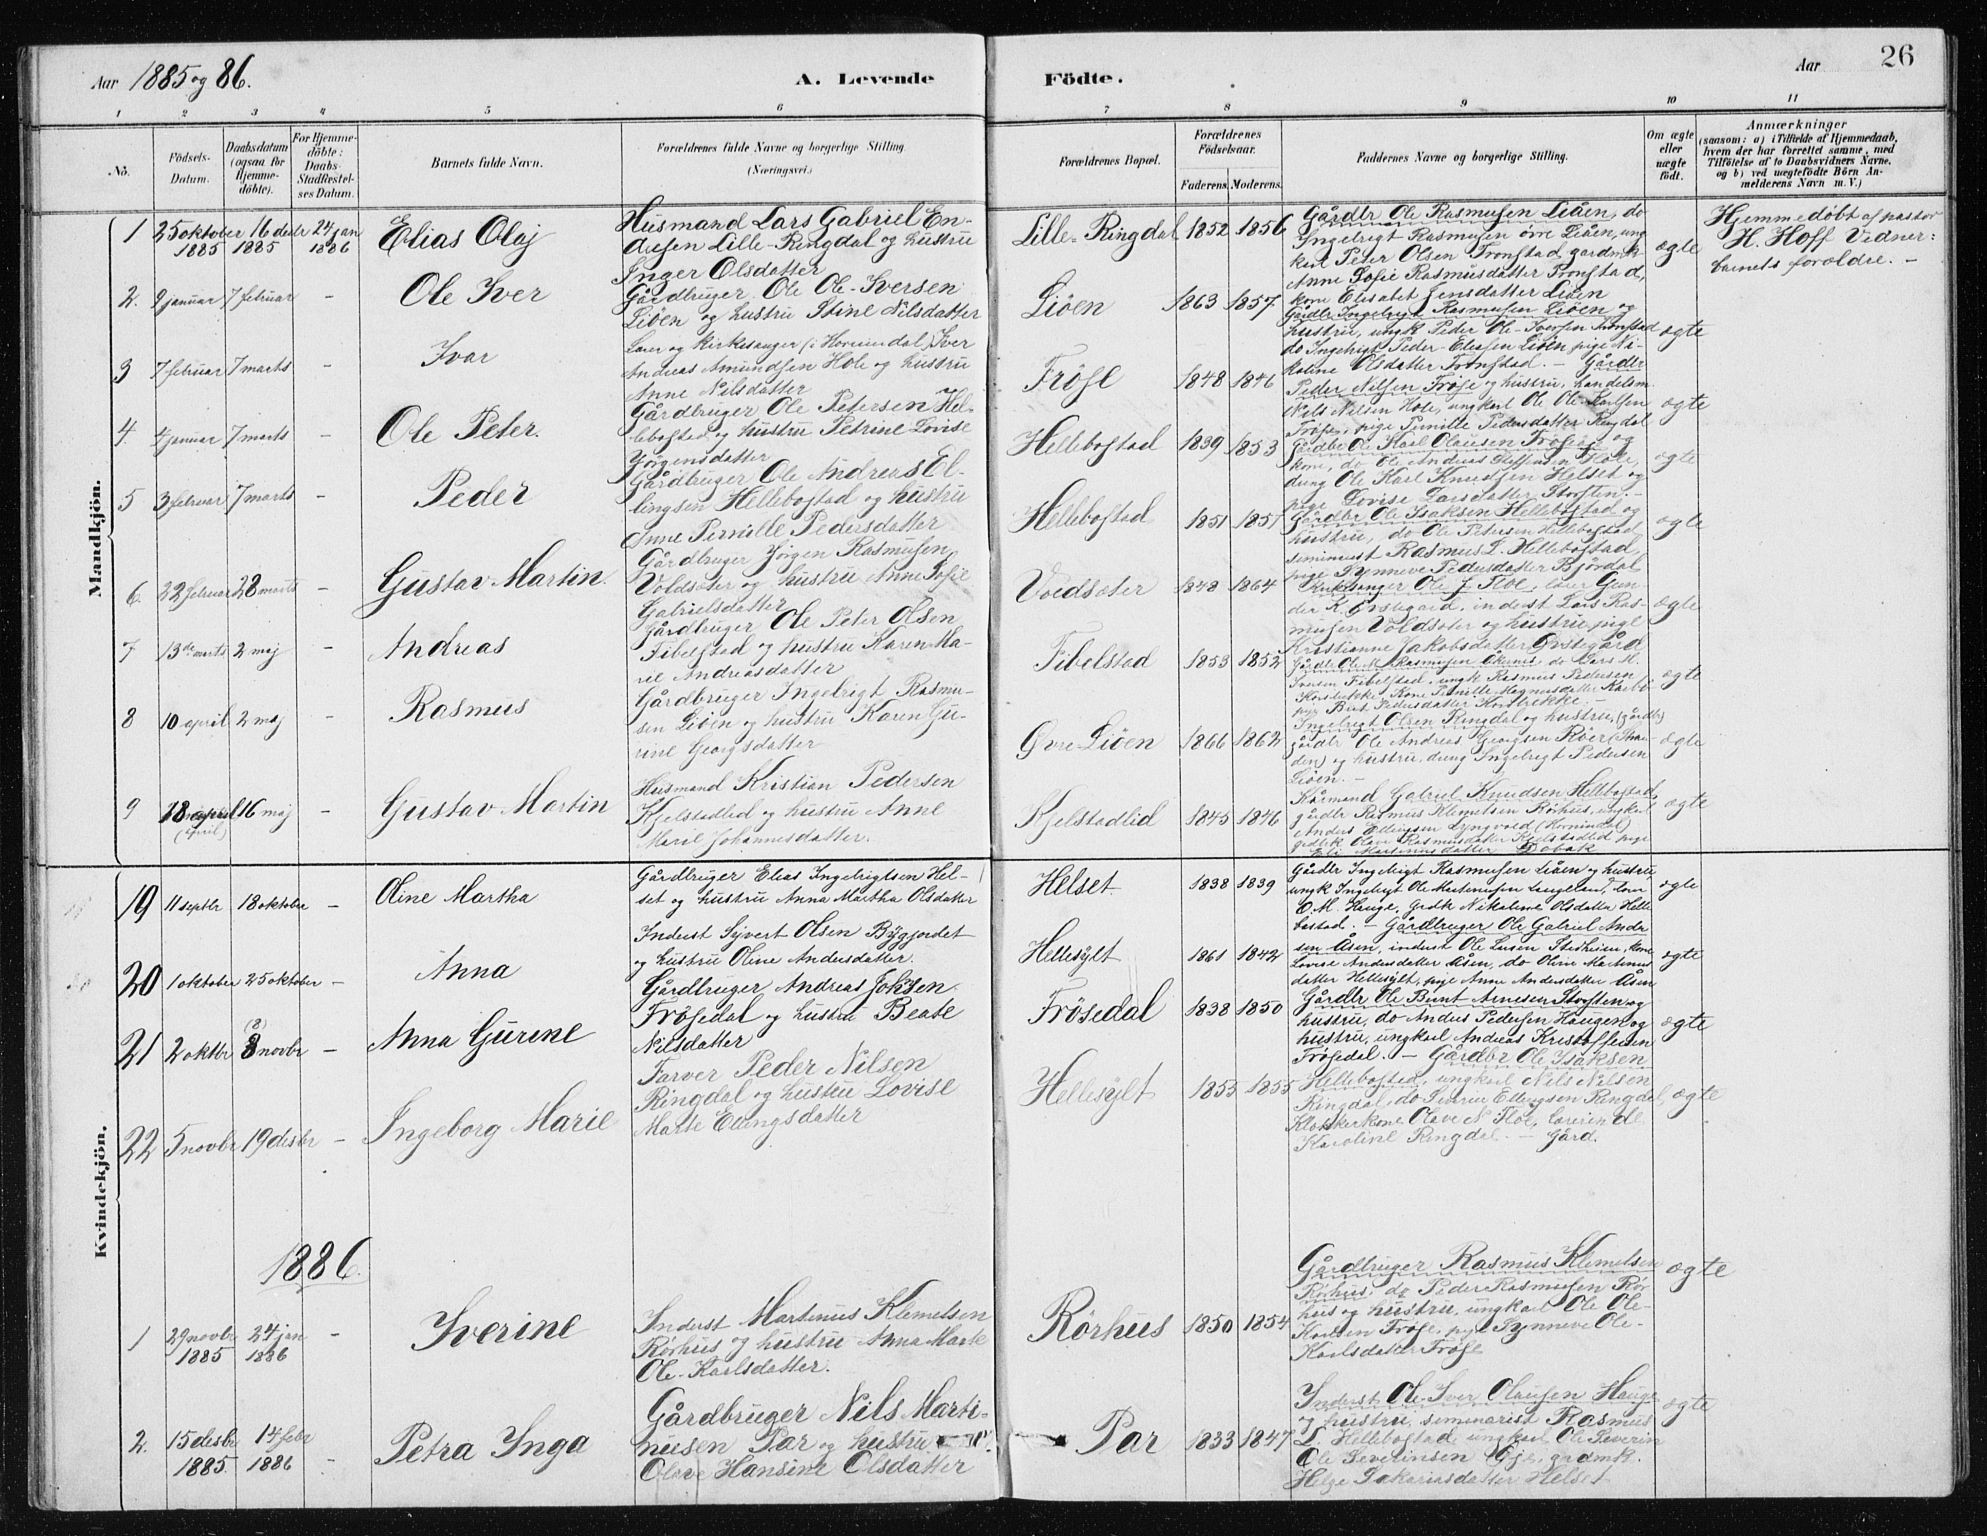 Aar 1885 og 86.
A. Levende
Födte.
Aar
26
1 2 3 4 5 6 7 8 9 10 11
No.
Födsels-
Datum.
Daabsdatum
(ogsaa for
Hjemme-
döbte).
For Hjemme-
döbte:
Daabs
Stadfæstel-
ses Datum.
Barnets fulde Navn.
Forældrenes fulde Navne og borgerlige Stilling
(Næringsvei.)
Forældrenes Bopæl.
Forældrenes
Födselsaar.
Faderens. Moderens.
Faddernes Navne og borgerlige Stilling.
Om ægte
eller
uægte
födt.
Anmærkninger
(saasom: a) i Tilfælde af Hjemmedaab,
hvem der har forrettet samme, med
Tilföielse af to Daabsvidners Navne,
og b) ved uægtefödte Börn An-
melderens Navn m. V.)
Mandkjön.
1 25 oktober 1885 16 decbr 1885 24 jan 1886
Elias Olaj
Husmand Lars Gabriel En-
Lille-Ringdal og hustru
Inger Olsdatter
Lille-Ringdal 1852 1856
Gårdbr Ole Rasmusen Liåen, do
Ingelrigt Rasmusen övre Liåen, ung
karl Peter Olsen Tronstad
Anne Sofie Rasmusdatter Tronstad,
kone Elisabet Jensdatter Liöen
ægte
Hjemmedöbt af pastor
H. Hoff Vidner:
barnets foroldre. -
2. 9 januar 7 februar -
Ole Iver
Gårdbruger Ole Ole-Iversen
Liöen og hustru Stine Nilsdatter
Liöen 1863 1857
Gårdbr Ingelrigt Rasmusen Liöen og
hustru, ungk Peder Ole-Iversen Tronstad
do Ingebrigt Peder-Eliasen Liöen pige Ni-
koline Olsdatter Tronstad. -
ægte
3 7 februar 7 marts -
Ivar
Lærer og kirkesanger (i Hornindal) Iver
Andreas Amundsen Hole og hustru
Anne Nilsdatter
Fröse 1848 1846
Gårdbr
Peder Nilsen Fröse og hustru, handelsm.
Nils Nilsen Hole, ungkarl Ole Ole-Karlsen
Fröse, pige Pernille Pedersdatter Ringdal
ægte
4 4 januar 7 marts -
Ole Peter.
Gårdbruger Ole Petersen Hel-
lebostad og hustru Petrine Lovise
Jörgensdatter
Hellebostad 1839 1853
Gårdbr Ole Karl Olausen Fröse og
kone, do Ole Andreas Steffensen Hole,
dreng Ole Karl Knudsen Helset og
pige Lovise Larsdatter Storsten. -
ægte
5 3 februar 7 marts -
Peder
Gårdbruger Ole Andreas El-
lingsen Hellebostad og hustru
Anne Pernille Pedersdatter
Hellebostad 1851 1851
Gårdbr Ole Isaksen Hellebostad og
hustru, do Ole Petersen Hellebostad,
seminarist Rasmus L. Hellebostad,
pige Synneve Pedersdatter Björdal
ægte
6. 22 februar 28 marts -
Gustav Martin.
Gårdbruger Jörgen Rasmusen
Voldsæter og hustru Anne Sofie
Gabrielsdatter
Voldsæter 1848 1864
Kirkesanger Ole J. Floe, lærer Gun-
der K. Övstegaard, inderst Lars Ras-
musen Voldsæter og hustru, pige
Kristianne Jakobsdatter Övstegård
ægte
7 13de marts 2 maj -
Andreas
Gårdbruger Ole Peter Olsen
Fibelstad og hustru Karen Ma-
rie Andreasdatter
Fibelstad 1853 1852
Iversen Fibelstad, ungk Rasmus Pedersen
Korsbrekke, kone Pernille Magnusdatter
pige Birt Pedersdatter Korsbrekke. -
ægte
8 10 april 2 maj -
Rasmus
Gårdbruger Ingelrigt Rasmu-
sen Liöen og hustru Karen Gu-
rine Georgsdatter
Övre Liöen 1866 1862
Ingelrigt Olsen Ringdal og hustru, (gårdbr)
gårdbr Ole Andreas Georgsen Röer (Stran-
den) og hustru, dreng Ingelrigt Pedersen
Liöen. -
ægte
9 18 april (april) 16 maj -
Gustav Martin
Husmand Kristian Pedersen
Kjelstadlid og hustru Anne
Marie Johannesdatter.
Kjelstadlid 1845 1846
Kårmand Gabriel Knudsen Hellebostad,
gårdbr Rasmus Klemetsen Rörhus, ungkarl
Anders Ellingsen Lyngvold (Hornindal)
Rasmusdatter Kjelstadlid pige
Eli Martinusdatter
ægte
Kvindekjön.
19 11 septbr 18 oktober -
Oline Martha
Gårdbruger Elias Ingelrigtsen Hel-
set og hustru Anna Martha Olsdatter
Helset 1838 1839
Gårdbr Ingelrigt Rasmusen Liåen og hustru
ungk Ingelrigt Ole-Martinusen Langeland, lærer
O. M. Hauge, grdk Nikoline Olsdatter Helle
bostad. -
ægte
20 1 oktober 25 oktober -
Anna
Inderst Syvert Olsen Bygjordet
og hustru Oline Andersdatter.
Hellesylt 1861 1842
Gårdbruger Ole Gabriel Andr
sen Åsen, inderst Ole Larsen Stadheim, kone
Lovise Andersdatter Åsen, do Oline Martinus
datter Hellesylt, pige Anne Andersdatter Åsen
ægte
21 2 oktbr 8 (8) novbr -
Anna Gurine
Gårdbruger Andreas Johnsen
Frösedal og hustru Beate
Nilsdatter
Frösedal 1838 1850
Gårdbr Ole Bernt Arnesen Storsten og
hustru, do Anders Pedersen Haugen og
hustru, ungkarl Andreas Kristoffersen
Frösedal. -
ægte
22 5 novbr 19 desbr -
Ingeborg Marie
Farver Peder Nilsen
Ringdal og hustru Lovise
Marte Ellingsdatter
Hellesylt 1855 1855
Gårdbr Ole Isaksen
Hellebostad, ungkarl Nils Nilsen
Ringdal, do Severin Ellingsen Ringdal,
Klokkerkone Olave N. Floe, lærerinde
Karoline Ringdal. - Gård.
ægte
1886.
1 29 novbr 1885 24 jan 1886 -
Iverine
Inderst Martinus Klemetsen
Rörhus og hustru Anna Marte
Ole-Karlsdatter.
Rörhus 1850 1854
Gårdbruger Rasmus Klemetsen
Rörhus, do Peder Rasmusen Rör
hus og hustru, ungkarl Ole Ole-
Karlsen Fröse, pige Synneve Ole-
Karlsdatter Fröse
ægte
2. 15 desbr 1885. 14 febr 1886 -
Petra Inga
Gårdbruger Nils Marti-
nusen Tar og hustru
Olave Hansine Olsdatter
Tar 1833 1847
Inderst Ole-Iver Olausen Hauge
og hustru, seminarist Rasmus
L. Hellebostad, ungkarl Ole Severin
Ole Severinsen Gje, grdmk.
Helge Sakariasdatter Helset
ægte